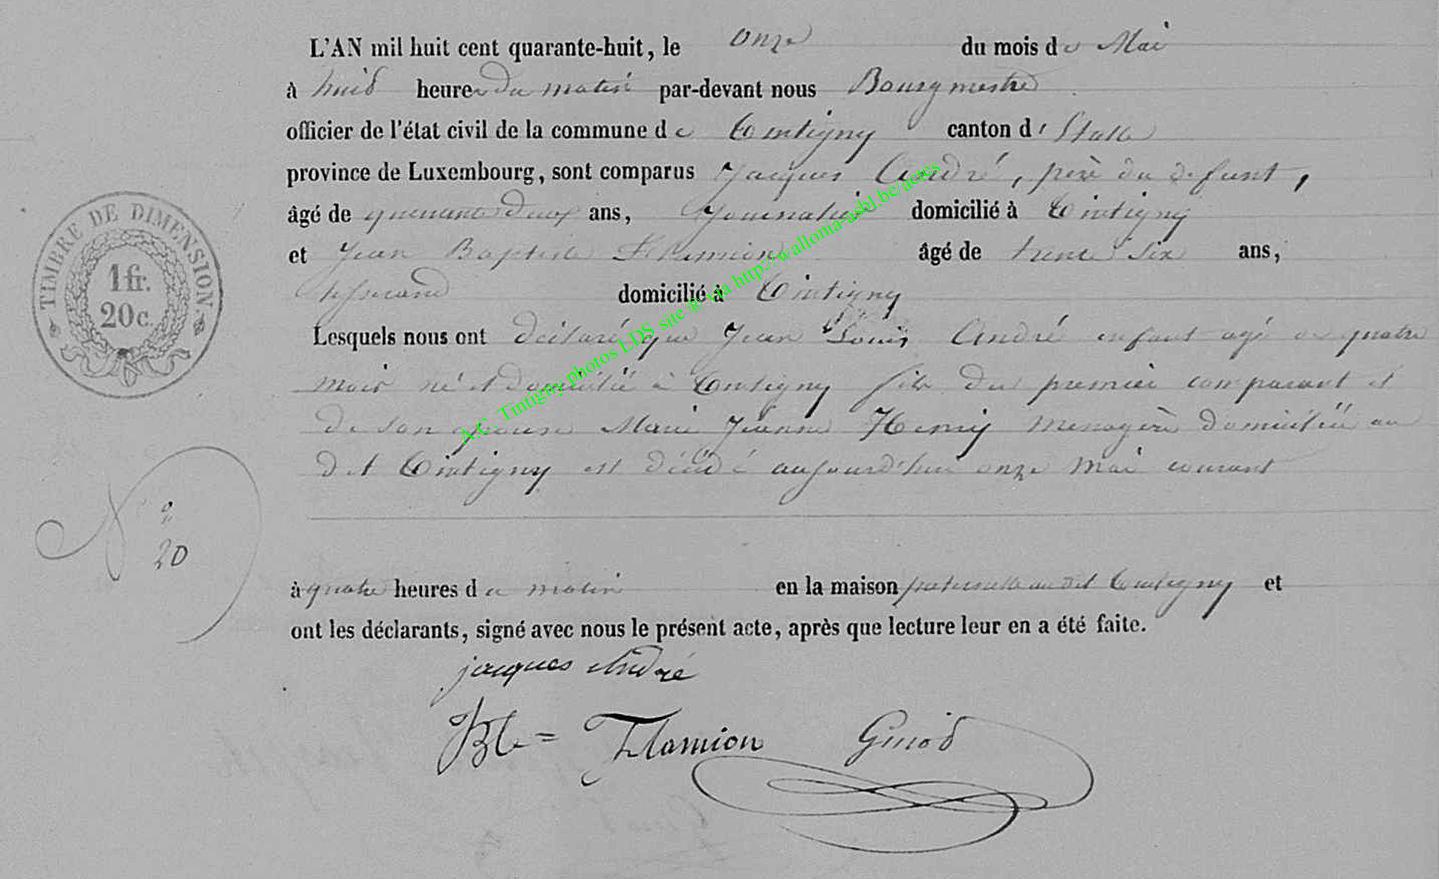 L'AN mil huit cent quarante-huit, le onze du mois de Mai
à huit heures du matin par-devant nous Bourgmestre
officier de l'état civil de la commune de Tintigny canton d'Etalle
province de Luxembourg, sont comparus Jacques André, père du defunt,
âgé de quarante deux ans, Journalier domicilié à Tintigny
et Jean Baptiste Flamion âgé de trente six ans,
domicilié à Tintigny
Lesquels nous ont déclaré que Jean Louis André enfant agé de quatre
mois né et domicilié à Tintigny fils du premier comparant et
de son épouse Marie Jeanne Henry Menagère domiciliée au
dit Tintigny est décédé aujourd'hui onze Mai courant
à quatre heures du matin en la maison paternelle au dit Tintigny et
ont les déclarants, signé avec nous le présent acte, après que lecture leur en a été faite.
jacques André
JBte = Flamion
TIMBRE DE DIMENSION
1 fr.
20 c.
N°
20
A.C. Tintigny photos LDS site © via http://wallonia-asbl.be/actes